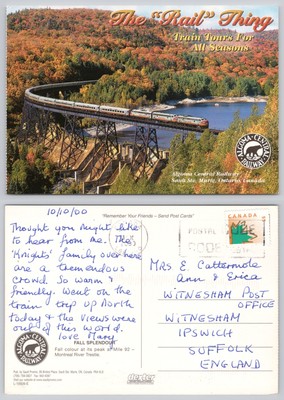 The "Rail" Thing
Train Tours For
All Seasons
ALGOMA CENTRAL RAILWAY
Algoma Central Railway
Sault Ste. Marie, Ontario, Canada
10/10/00
"Remember Your Friends - Send Post Cards"
CANADA
POSTAL
CODE
Thought you might like
to hear from me. The
'Knights' family over here
are a tremendous
crowd. So warm &
friendly. Went on the
train trip up North
today & the views were
out of this world.
love Mary
MRS E. Cattermole
Ann & Erica
WITNESHAM POST
OFFICE
WITNESHAM
IPSWICH
SUFFOLK
ENGLAND
FALL SPLENDOUR
Fall colour at its peak at Mile 92 -
Montreal River Trestle.
dexter